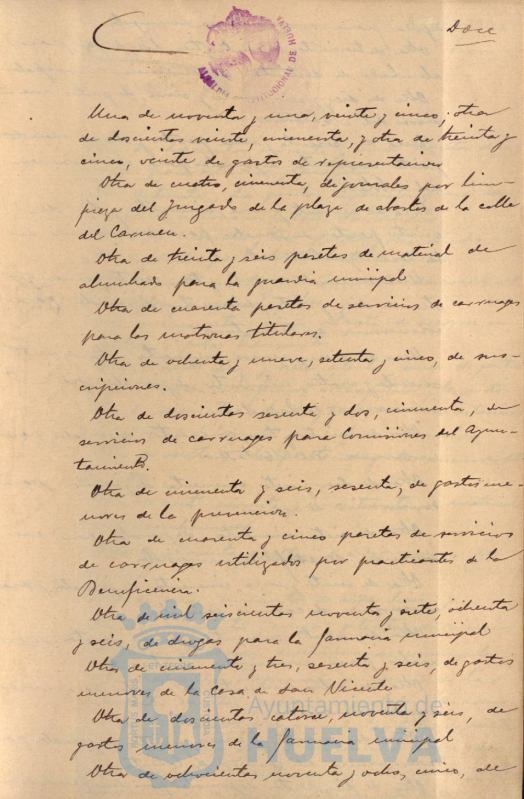 Doce
ALCALDIA CONSTITUCIONAL DE HUELVA
Una de noventa y una, veinte y cinco; otra
de doscientas veinte, cincuenta, y otra de treinta y
cinco, veinte de gastos de representacion
Otra de cuatro, cincuenta, de jornales por lim-
pieza del Juzgado de la plaza de abastos de la calle
del Carmen.
Otra de treinta y seis pesetas de material de
alumbrado para la guardia municipal
Otra de cuarenta pesetas de servicios de carruages
para las matronas titulares.
Otra de ochenta y nueve, setenta y cinco, de sus-
cripciones.
Otra de doscientas sesenta y dos, cincuenta, de
servicios de carruages para Comisiones del Ayun-
tamiento.
Otra de cincuenta y seis, sesenta, de gastos me-
nores de la prevencion.
Otra de cuarenta y cinco pesetas de servicios
de carruages utilizados por practicantes de la
Beneficencia.
Otra de mil seiscientas noventa y siete, ochenta
y seis, de drogas para la farmacia municipal
Otra de cincuenta y tres, sesenta y seis, de gastos
menores de la Casa de San Vicente
Otra de doscientas catorce, noventa y seis, de
gastos menores de la farmacia municipal
Otra de ochocientas noventa y ocho, cinco, de
Ayuntamiento de
HUELVA